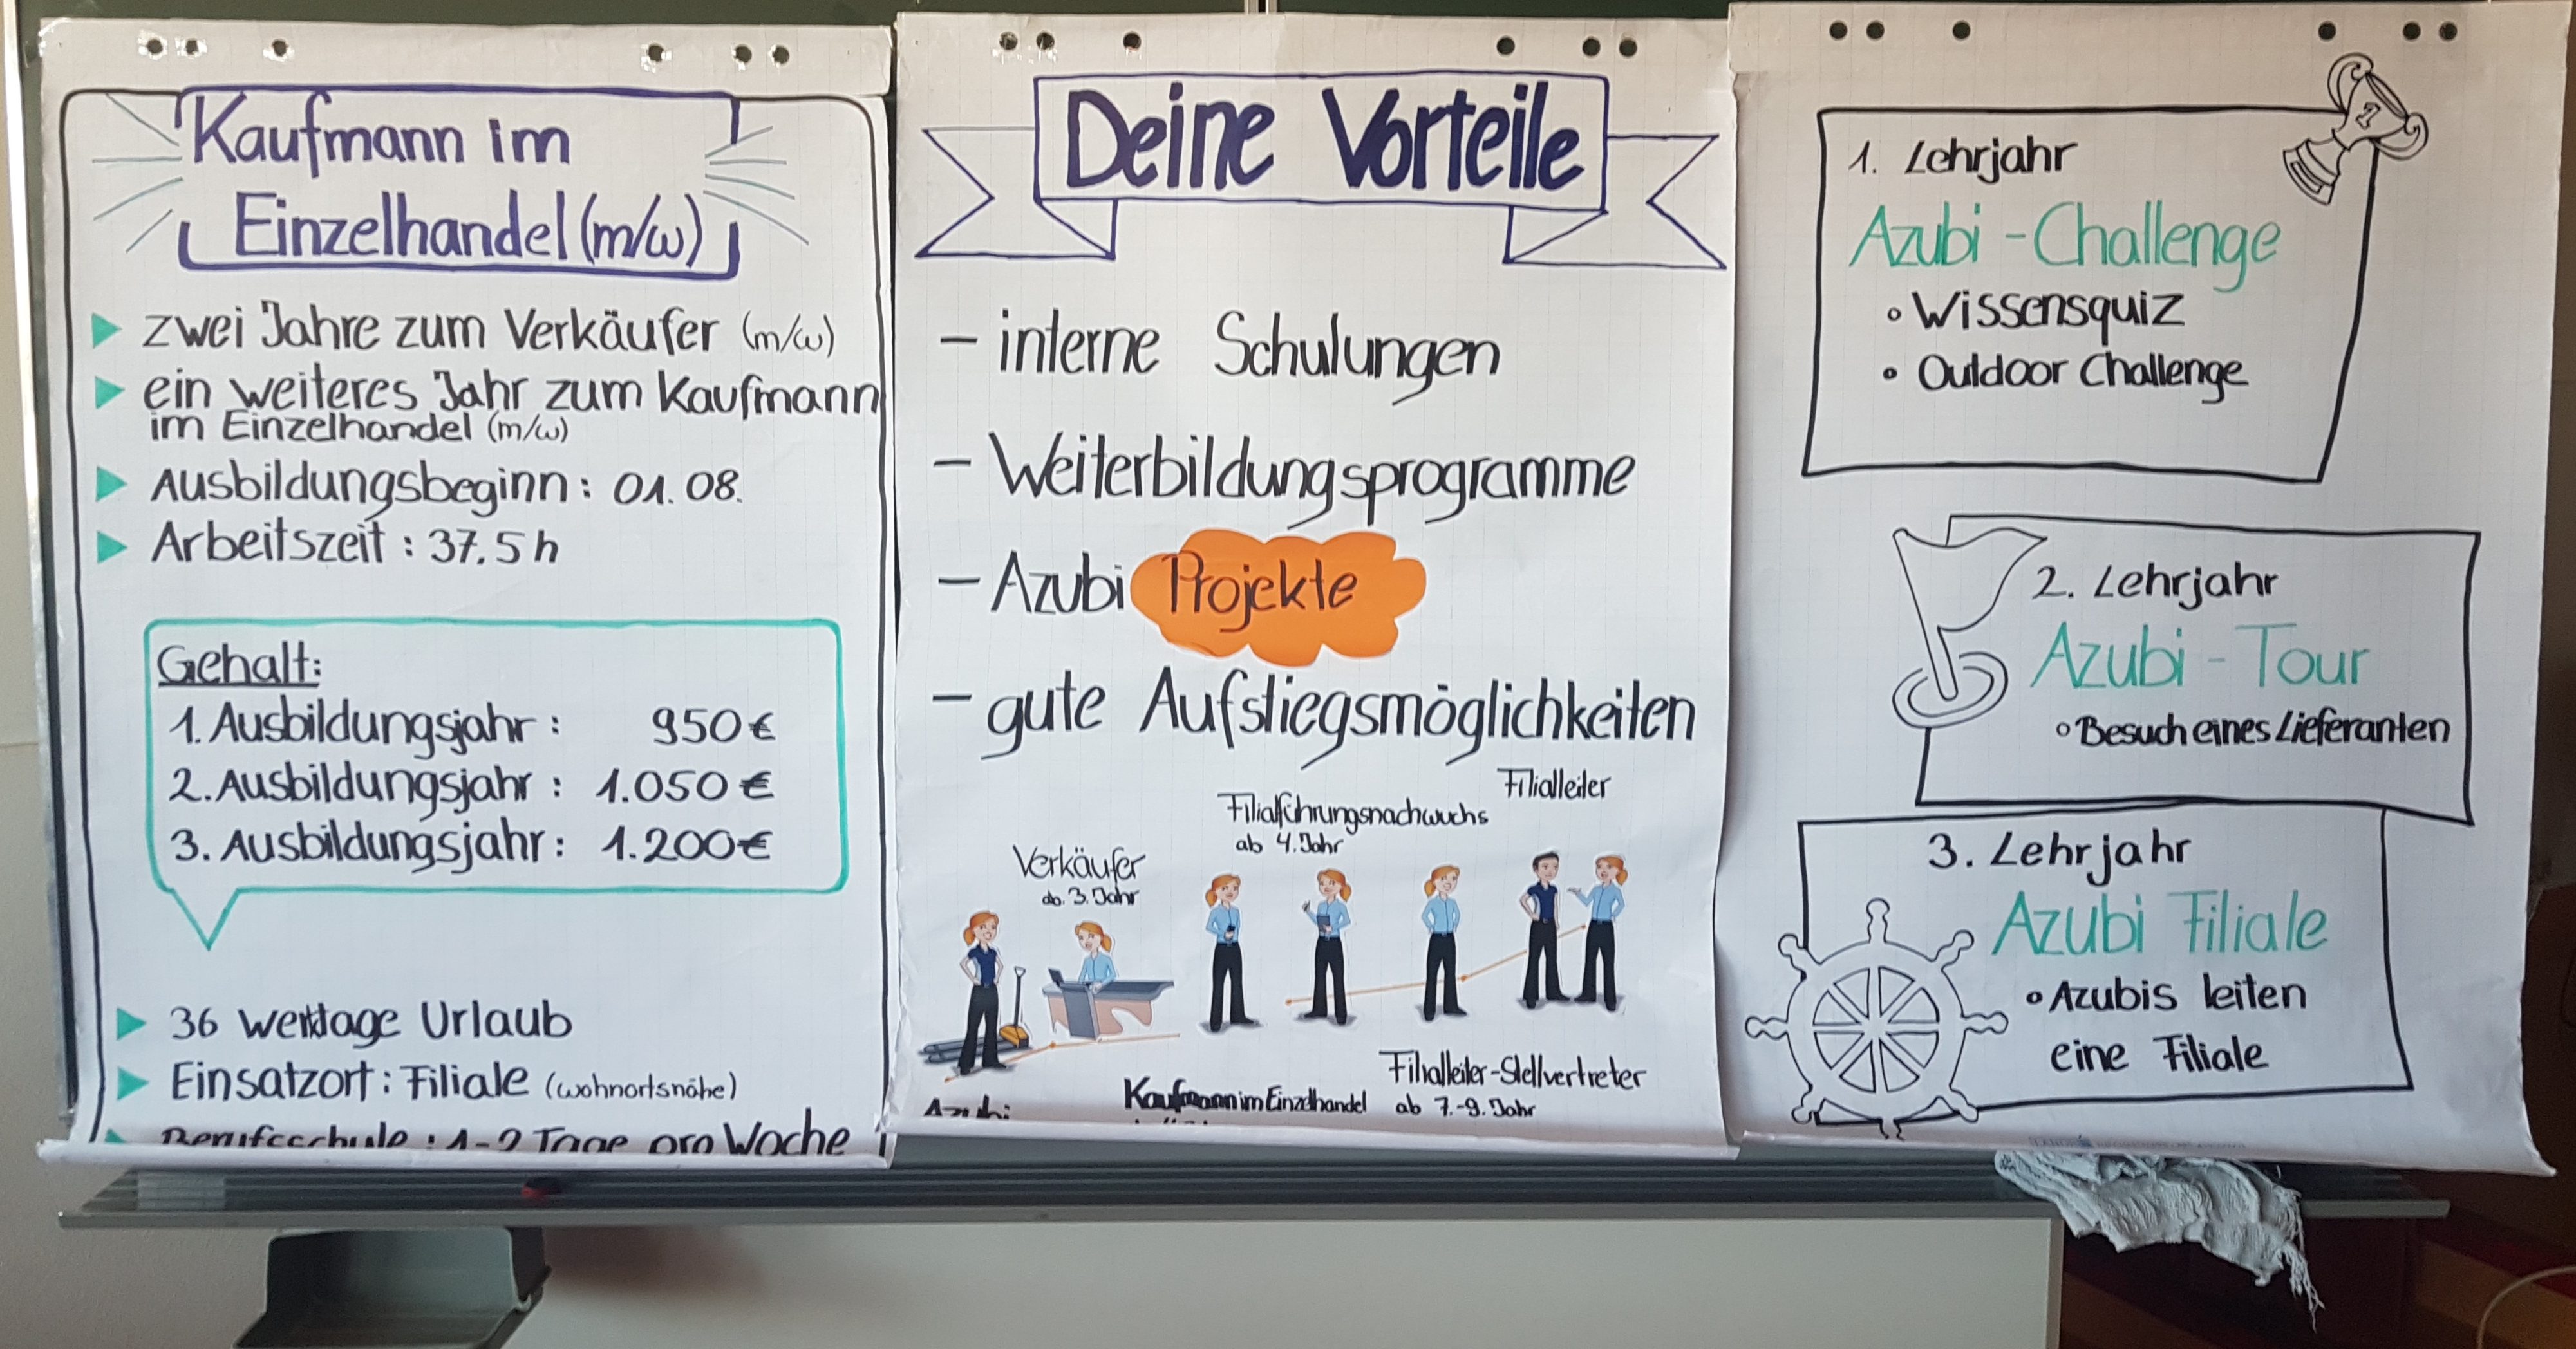 Kaufmann im
Einzelhandel (m/w)
zwei Jahre zum Verkäufer (m/w)
ein weiteres Jahr zum Kaufmann
im Einzelhandel (m/w)
Ausbildungsbeginn: 01.08.
Arbeitszeit: 37.5h
Gehalt:
1. Ausbildungsjahr: 950€
2. Ausbildungsjahr: 1.050€
3. Ausbildungsjahr: 1.200€
36 Werktage Urlaub
Einsatzort: Filiale (wohnortsnähe)
Berufsschule: 1-2 Tage pro Woche
Deine Vorteile
- interne Schulungen
- Weiterbildungsprogramme
- Azubi Projekte
- gute Aufstiegsmöglichkeiten
Filialleiter
Filialführungsnachwuchs
ab 4. Jahr
Verkäufer
ab. 3. Jahr
Filialleiter-Stellvertreter
ab 7.-9. Jahr
Kaufmann im Einzelhandel
Azubi
1. Lehrjahr
Azubi-Challenge
• Wissensquiz
• Outdoor Challenge
1
2. Lehrjahr
Azubi-Tour
• Besuch eines Lieferanten
3. Lehrjahr
Azubi Filiale
• Azubis leiten
eine Filiale